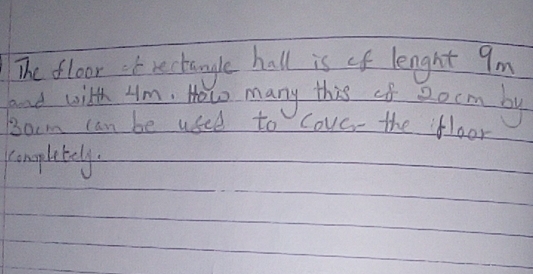 The floor of rectangle hall is of lenght 9m
and with 4m. How many this of 20cm by
30cm can be used to cover the floor
completely.